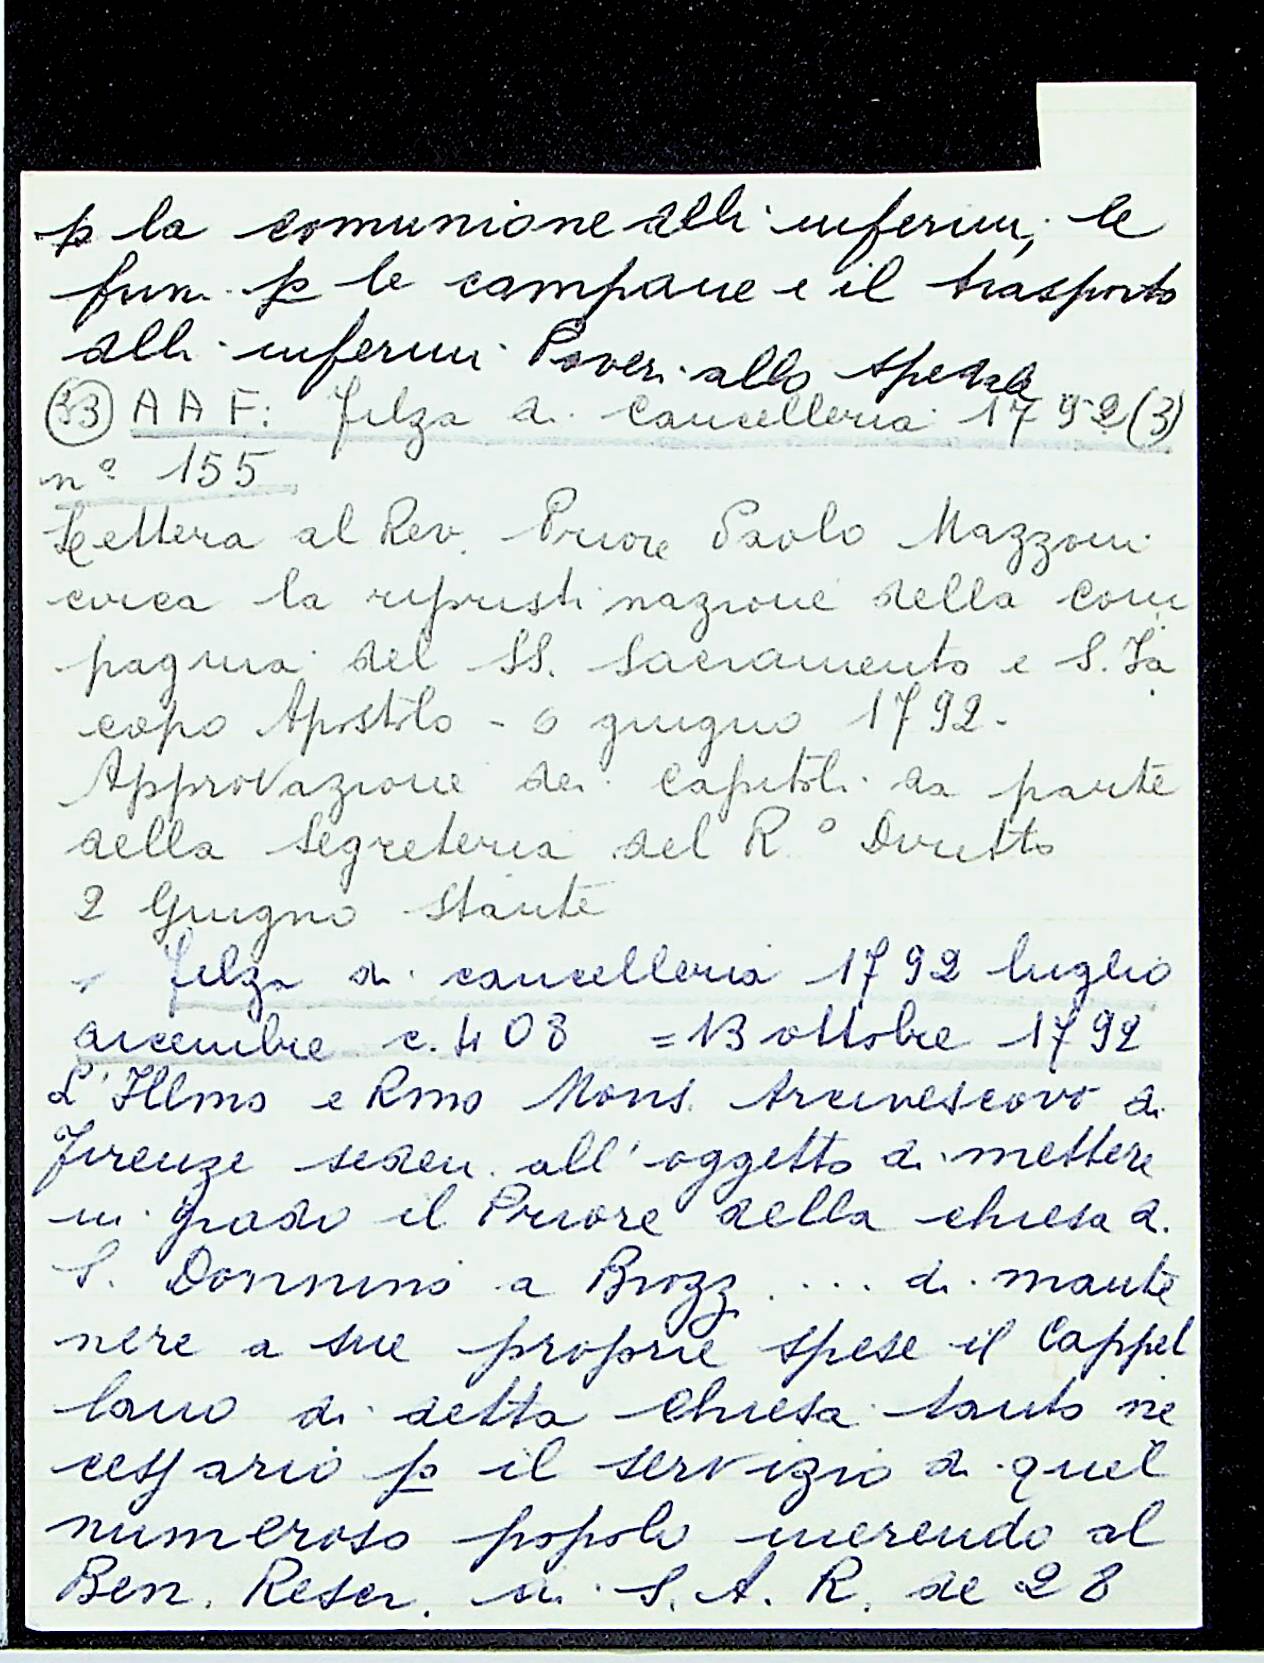 p la comunione delli infermi, le
funi p le campane e il trasporto
delli infermi Poveri allo spedale
(33) A A F: filza di Cancelleria 1792 (3)
n° 155
Lettera al Rev. Priore Paolo Mazzoni
circa la ripristinazione della Com
pagnia del SS. Sacramento e S. Ja
copo Apostolo - 6 giugno 1792.
Approvazione dei Capitoli da parte
della Segreteria del R.° Diritto
2 Giugno stante
filza di cancelleria 1792 luglio
dicembre c. 408 = 13 ottobre 1792
L'Illmo e Rmo Mons. Arcivescovo di
Firenze seden. all'oggetto di mettere
in grado il Priore della chiesa di
S. Donnino a Brozzi .... di mante
nere a sue proprie spese il Cappel
lano di detta Chiesa tanto ne
cessario p il servizio di quel
numeroso popolo inerendo al
Ben. Rescr. di S. A. R. de 28